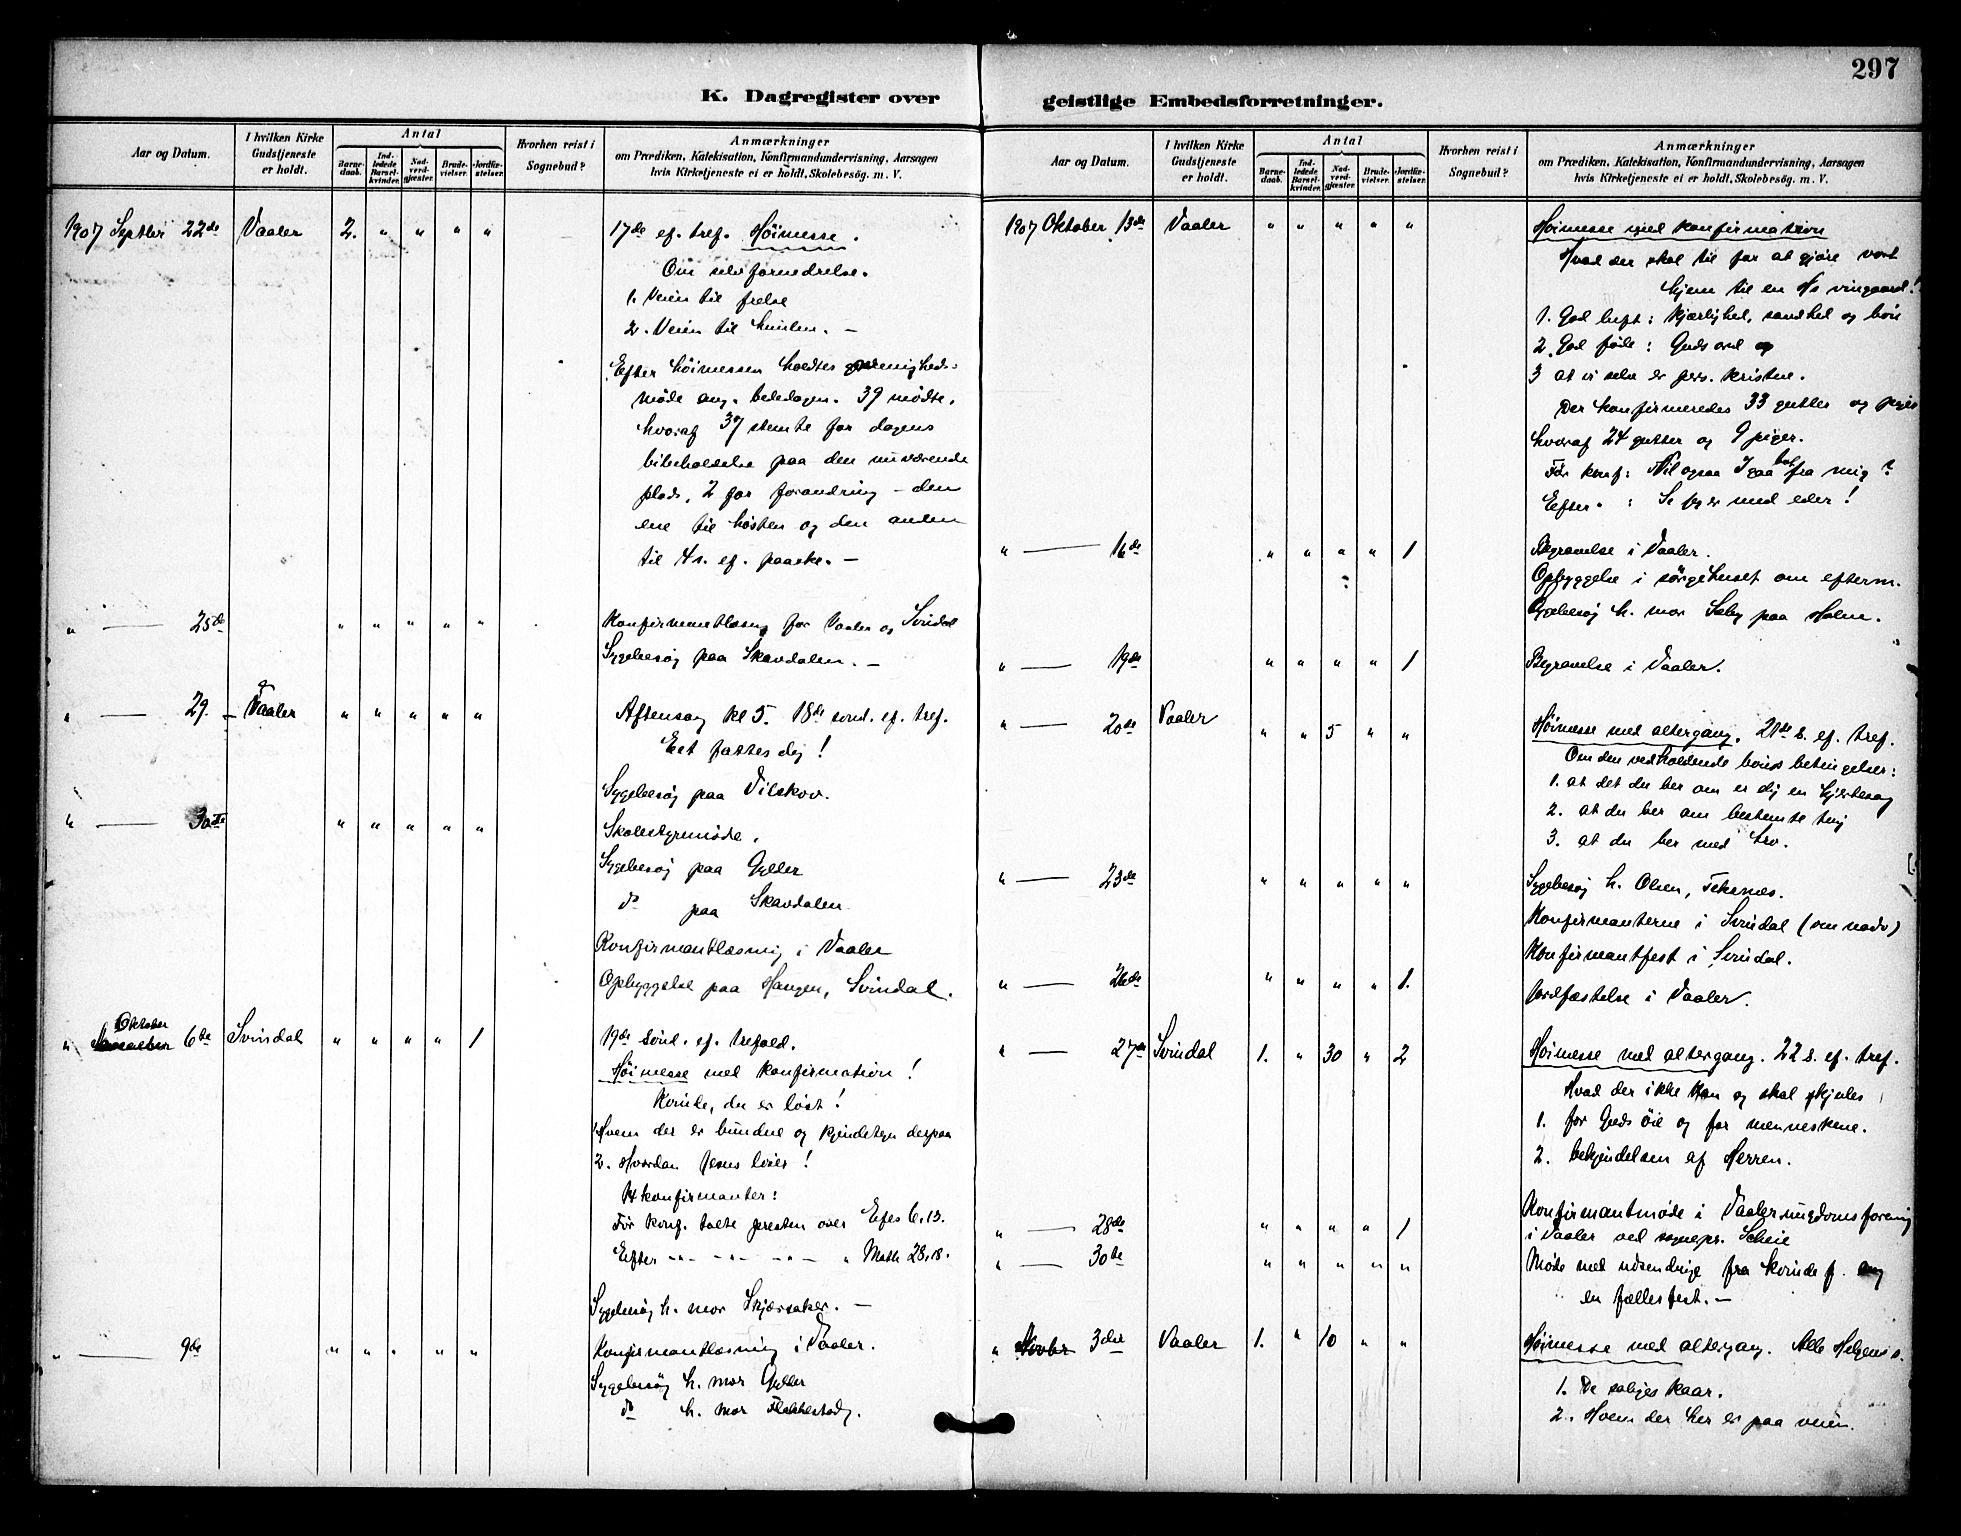 297
K. Dagregister over geistlige Embedsforretninger.
Aar og Datum.
I hvilken Kirke Gudstjeneste er holdt.
Antal
Barnedaab.
Indledede Barselkvinder.
Nadverdgjæster.
Brudevielser.
Jordfæstelser.
Hvorhen reist i Sognebud?
Anmærkninger
om Prædiken, Katekisation, Konfirmandundervisning, Aarsagen
hvis Kirketjeneste ei er holdt, Skolebesøg. m. V.
1907 Septbr 22de Vaaler 2. " " " " 17de ef. tref. Høimesse.
Om selvfornedrelse.
1. Veien til frelse
2. Veien til himlen. —
Efter høimessen holdtes menigheds-
møde ang. bededagen. 39 mødte,
hvoraf 37 stemte for dagens
bibeholdelse paa den nuværende
plads, 2 for forandring – den
ene til høsten og den anden
til 4 s. ef. paaske. —
" — 25de " " " " " Konfirmantlæsning for Vaaler og Svindal
Sygebesøg paa Skavdalen. —
" — 29. — Vaaler " " " " " Aftensang kl 5. 18de sønd. ef. tref.
Eet fattes dig!
Sygebesøg paa Vilskov.
" — 30te " " " " " Skolestyremøde.
Sygebesøg paa Gyller
do paa Skavdalen
Konfirmantlæsning i Vaaler
Opbyggelse paa Haugen, Svindal.
" Oktober 6te Svindal " " " " 1 19de sønd. ef. trefold.
Høimesse med konfirmation!
Kvinde, du er løst!
1. Hvem der er bundne og kjendetegn derpaa
2. Hvordan Jesus løser!
14 konfirmanter:
Før konf. talte presten over Efes 6,13.
Efter -"- -"- -"- " Math 28,18.
Sygebesøg h. mor Skjærsaker. —
" — 9de " " " " " Konfirmantlæsning i Vaaler.
Sygebesøg h. mor Gyller
do h. mor Flakkestad.
Aar og Datum.
I hvilken Kirke Gudstjeneste er holdt.
Antal
Barnedaab.
Indledede Barselkvinder.
Nadverdgjæster.
Brudevielser.
Jordfæstelser.
Hvorhen reist i Sognebud?
Anmærkninger
om Prædiken, Katekisation, Konfirmandundervisning, Aarsagen
hvis Kirketjeneste ei er holdt, Skolebesøg. m. V.
1907 Oktober 13de Vaaler " " " " " Høimesse med konfirmation
Hvad der skal til for at gjøre vort
hjem til en Hs vingaard!
1. God luft: kjærlighed, sandhed og bøn
2. God føde: Guds ord
3 at vi selv er pers. kristne.
Der konfirmeredes 33 gutter og piger
hvoraf 24 gutter og 9 piger.
Før konf: Vil ogsaa I gaa bort fra mig?
Efter " : Se jeg er med eder!
" — 16de " " " " 1 Begravelse i Vaaler.
Opbyggelse i sørgehuset om efterm.
Sygebesøg h. mor Sæby paa Holm.
" — 19de " " " " 1 Begravelse i Vaaler.
" — 20de Vaaler " " 5 " " Høimesse med altergang. 21de s. ef. tref.
Om den vedholdende bøns betingelser:
1. at det du ber om er dig en hjertesag
2. at du ber om bestemte ting
3. at du ber med tro.
" — 23de " " " " " Sygebesøg h. Olsen, Tekenæs.
Konfirmanterne i Svindal (om nadv)
Konfirmantfest i Svindal.
" — 26de " " " " 1. Jordfæstelse i Vaaler.
" — 27de Svindal 1. " 30 " 2 Høimesse med altergang. 22 s. ef. tref.
Hvad der ikke kan og skal skjules
1. for Guds øie og for menneskene.
2. bekjendelsen af Herren.
" — 28de " " " " 1 Konfirmantmøde i Vaaler ungdomsforening
i Vaaler ved sognepr. Scheie
" — 30te " " " " " Møde med udsendinge fra kvindef. ang
en fællesfest. —
" Novbr 3die Vaaler 1. " 10 " " Høimesse med altergang. Alle Helgens s.
1. De saliges kaar.
2. Hvem der her er paa veien.